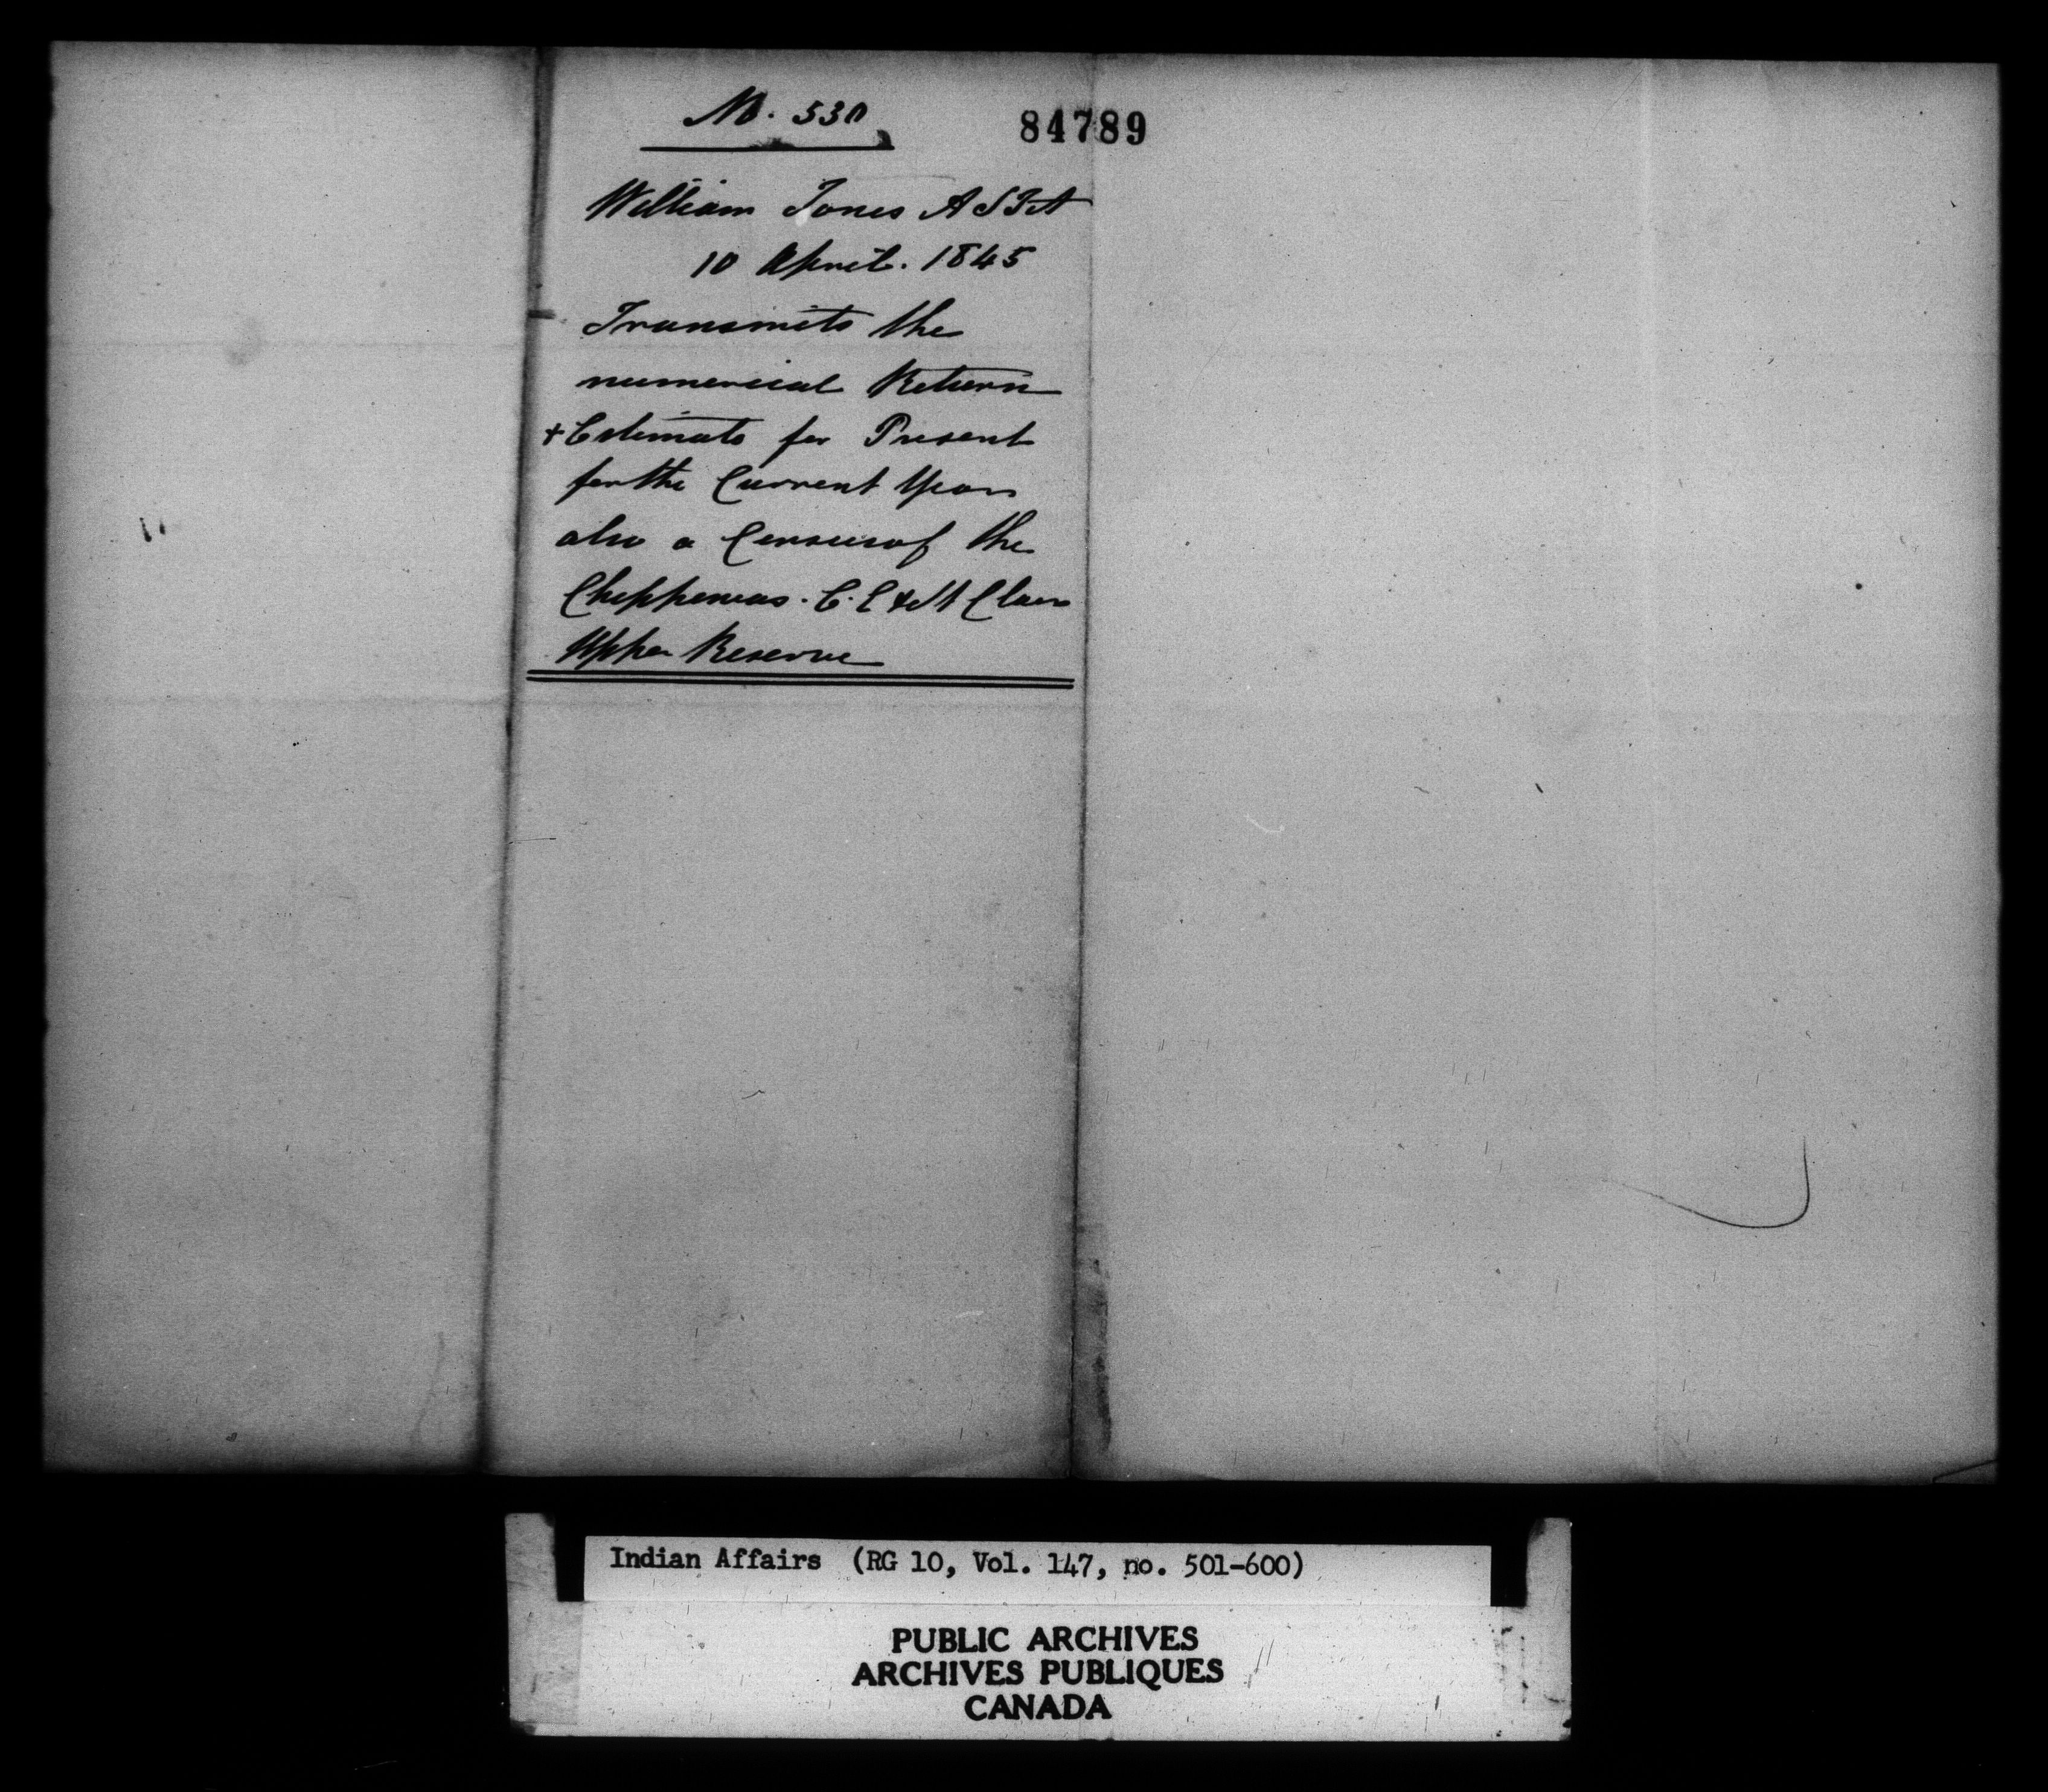 No. 530
84789
William Jones ASIA
10 April. 1845
Transmits the
numerical Return
+ Estimate for Present
for the Current Year
also a Census of the
Chippewas. & St Clair
Upper Reserve
Indian Affairs (RG 10, Vol. 147, no. 501-600)
PUBLIC ARCHIVES
ARCHIVES PUBLIQUES
CANADA